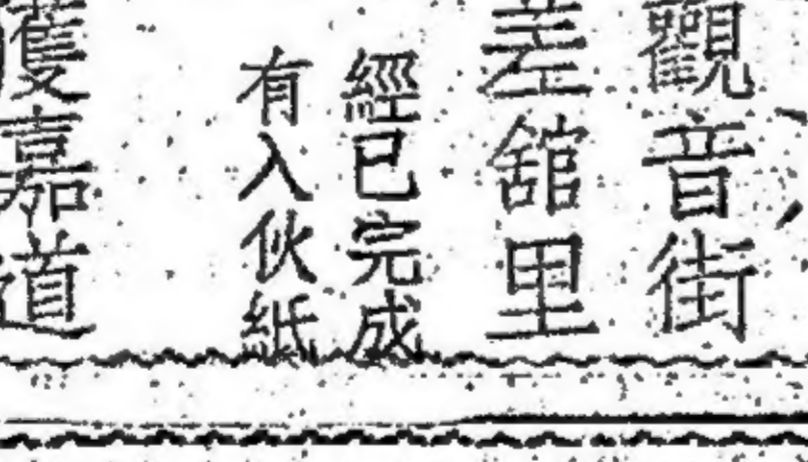 觀音街
差舘里
經已完成
有入伙紙
獲嘉道